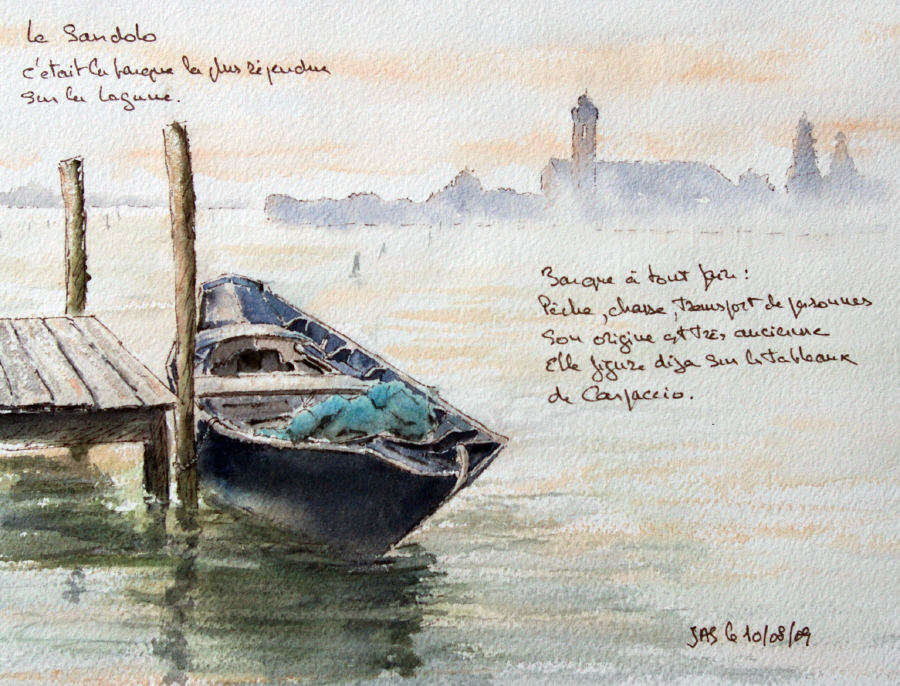 Le Sandolo
c'était la barque la plus répandue
sur la lagune.
Barque à tout faire :
Pêche, chasse, transport de personnes
Son origine est très ancienne
Elle figure déja sur les tableaux
de Carpaccio.
JAS le 10/08/09